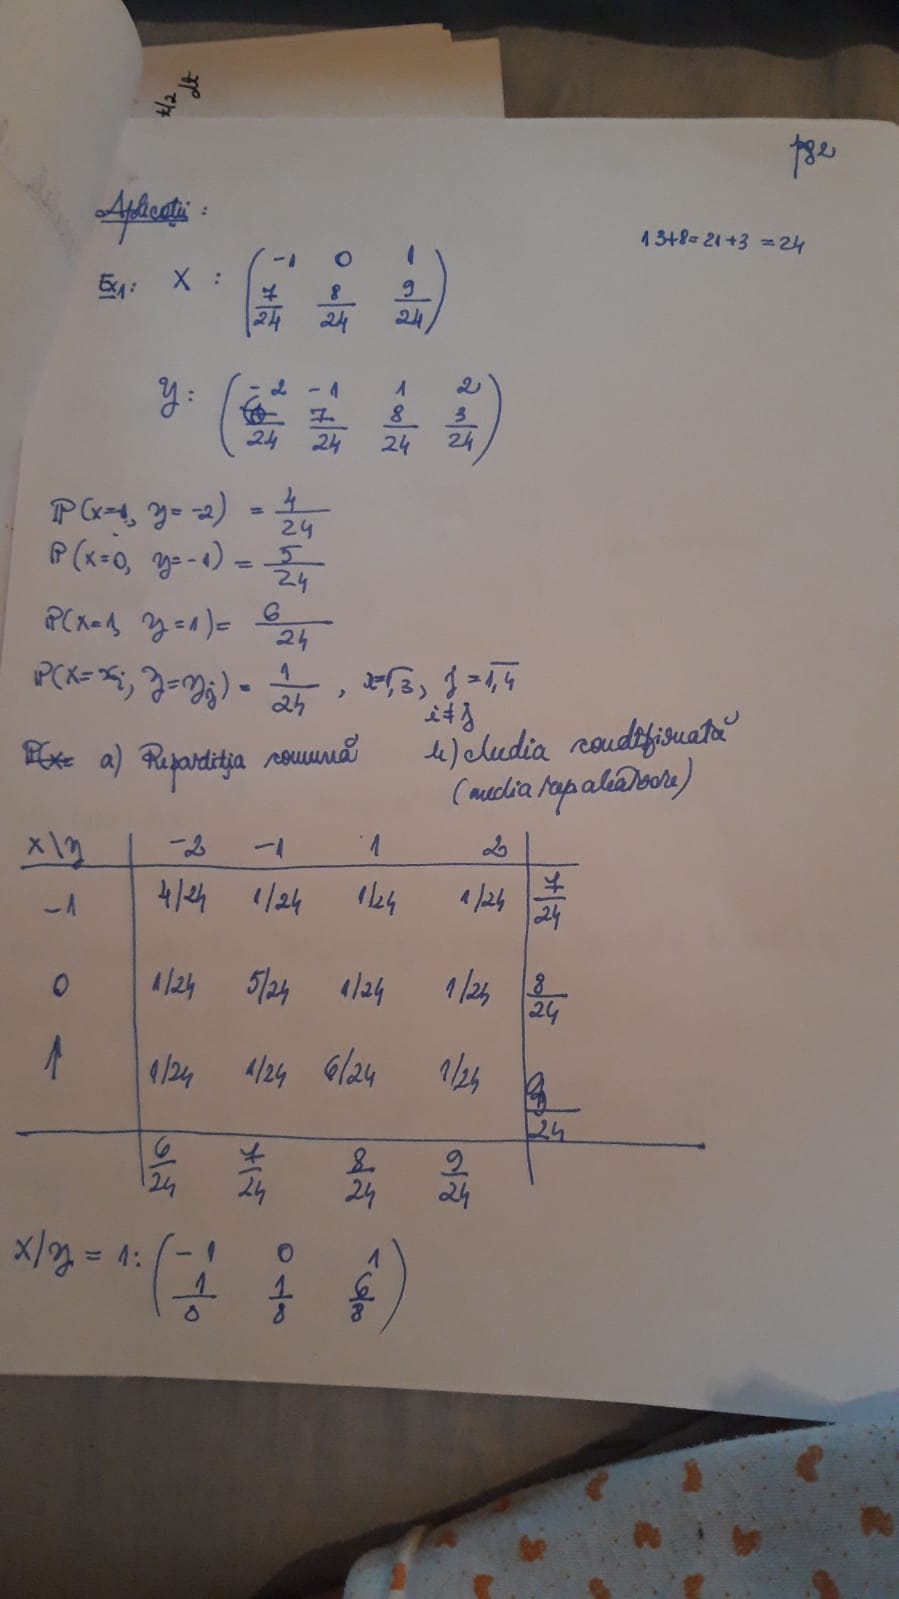 t/2
dt
pg2
Aplicații:
13+8=21+3=24
Ex1: X: ( -1 0 1
7/24 8/24 9/24 )
Y: ( -2 -1 1 2
6/24 7/24 8/24 3/24 )
P(x=-1, y=-2) = 4/24
P(x=0, y=-1) = 5/24
P(x=1, y=1) = 6/24
P(X=xi, Y=yj) = 1/24, i=1,3, j=1,4
i≠j
a) Repartiția comună b) Media condiționată
x\y -2 -1 1 2
-1 4/24 1/24 1/24 1/24 7/24
0 1/24 5/24 1/24 1/24 8/24
1 1/24 1/24 6/24 1/24 9/24
6/24 7/24 8/24 9/24
X/y = 1: ( -1 0 1
1/8 1/8 6/8 )